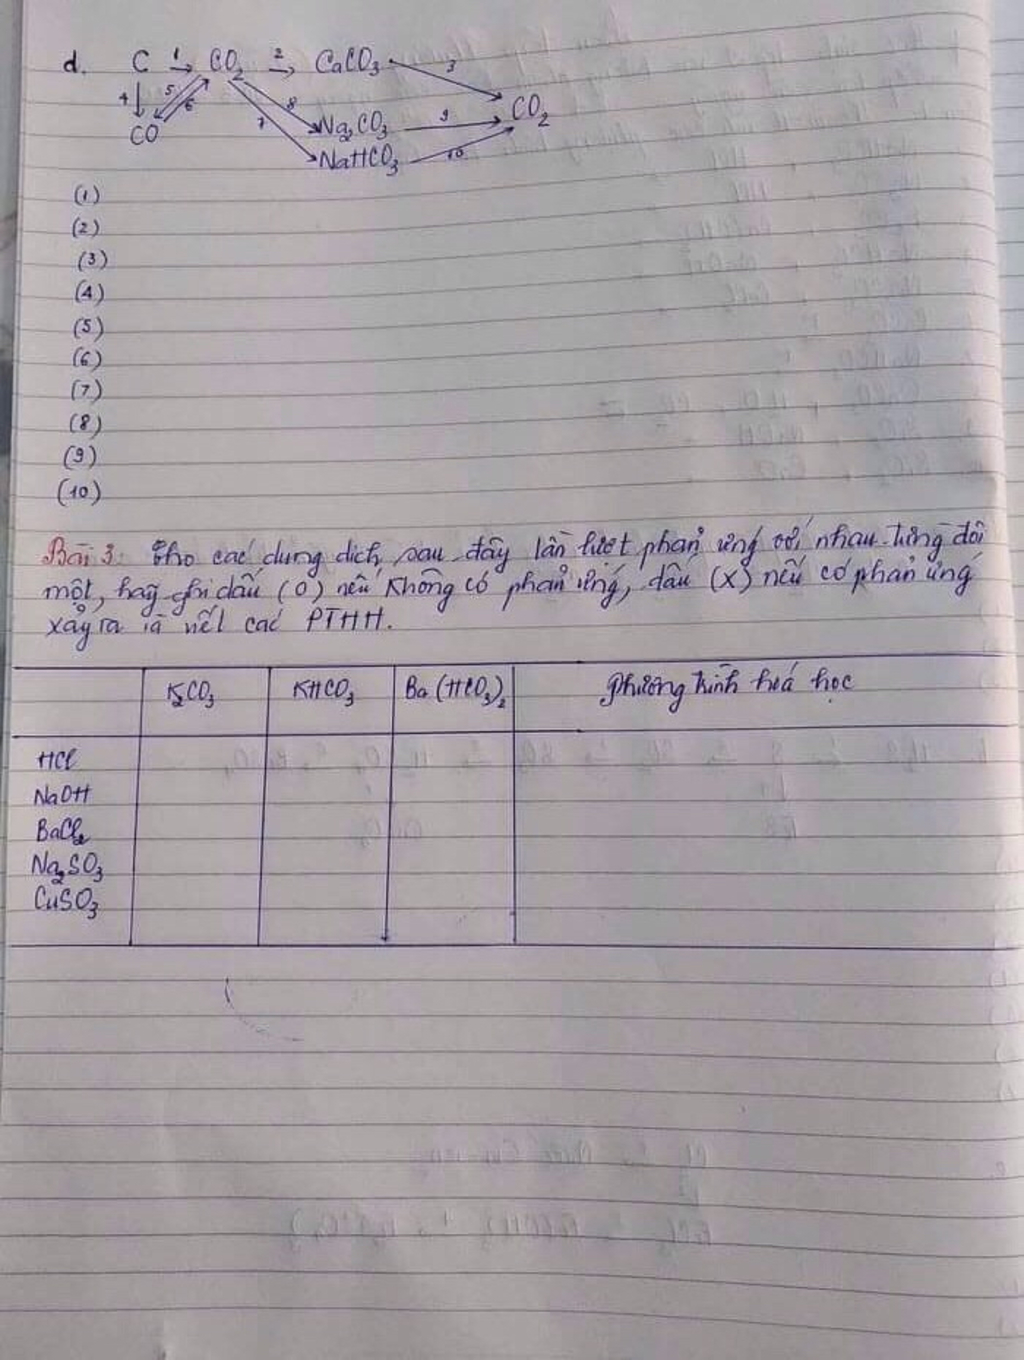 d. C 1→ CO2 2→ CaCO3 3
4 5 6 7 8 9 CO2
CO Na2CO3
NaHCO3 10
(1)
(2)
(3)
(4)
(5)
(6)
(7)
(8)
(9)
(10)
Bài 3: Cho các dung dịch sau đây lần lượt phản ứng với nhau từng đôi
một, hãy ghi dấu (0) nếu không có phản ứng, dấu (X) nếu có phản ứng
xảy ra và viết các PTHH.
K2CO3 KHCO3 Ba(HCO3)2 Phương trình hoá học
HCl
NaOH
BaCl2
Na2SO3
CuSO3